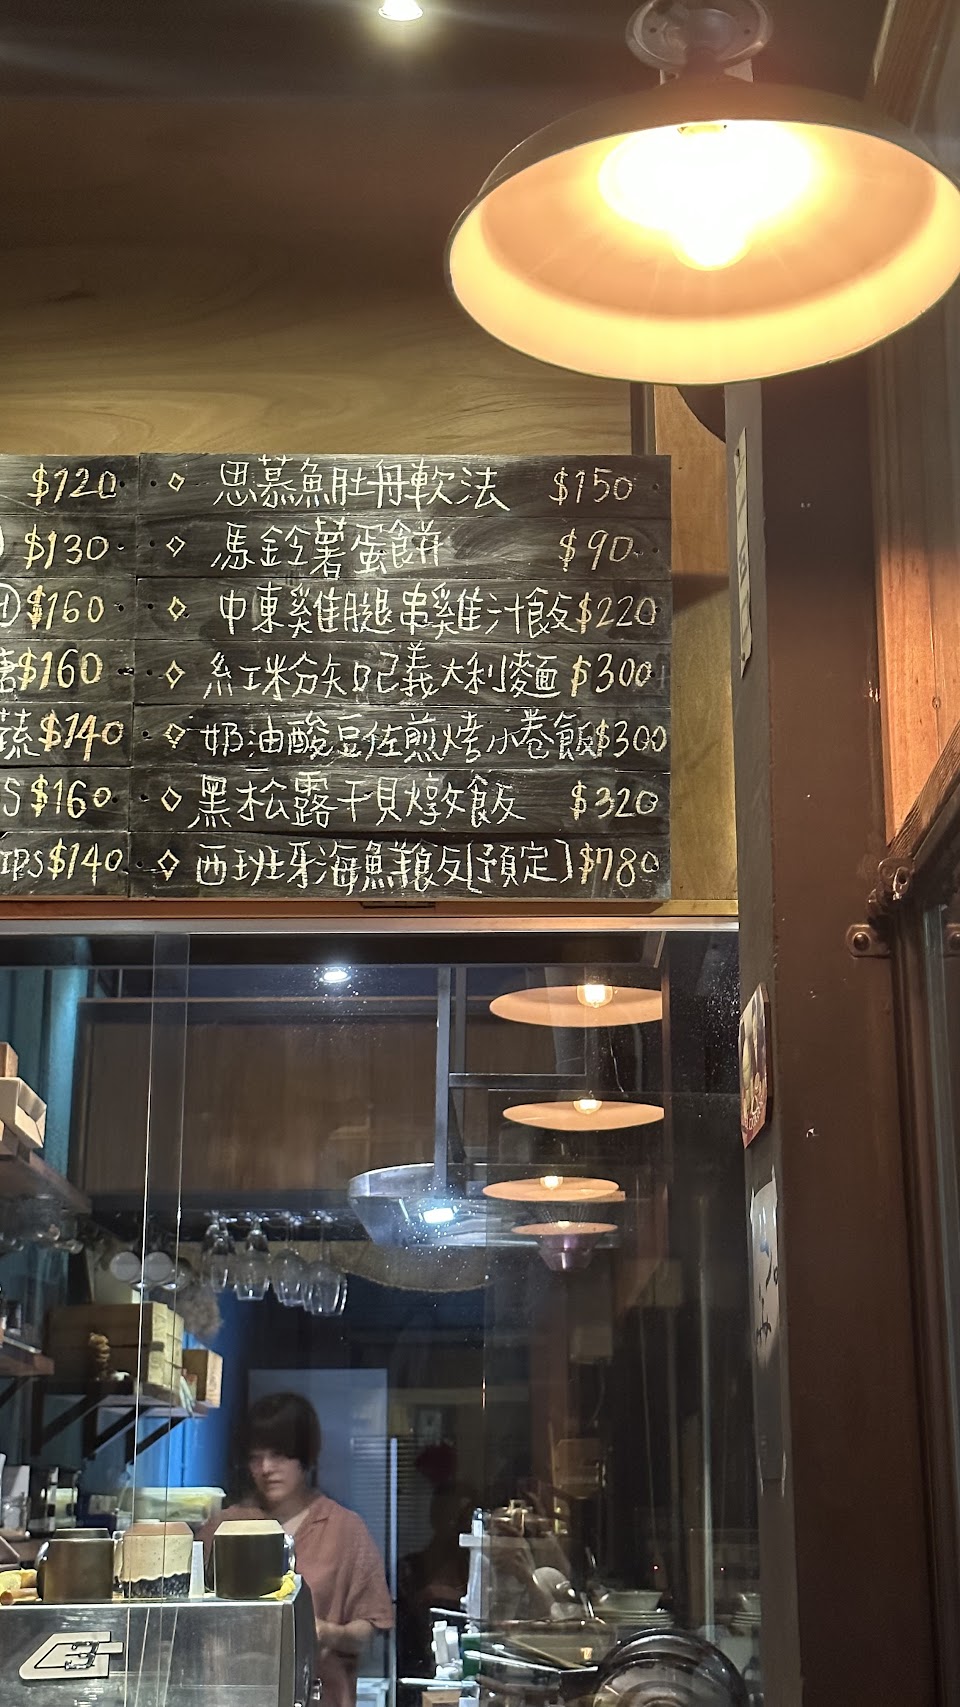 $120 ◇ 思慕魚肚丹軟法 $150
$130 ◇ 馬鈴薯蛋餅 $90
$160 ◇ 中東雞腿串雞汁飯 $220
糖 $160 ◇ 紅米粉知己義大利麵 $300
蔬 $140 ◇ 奶油酸豆佐煎烤小卷飯 $300
S $160 ◇ 黑松露干貝燉飯 $320
IPS $140 ◇ 西班牙海鮮飯[預定] $780